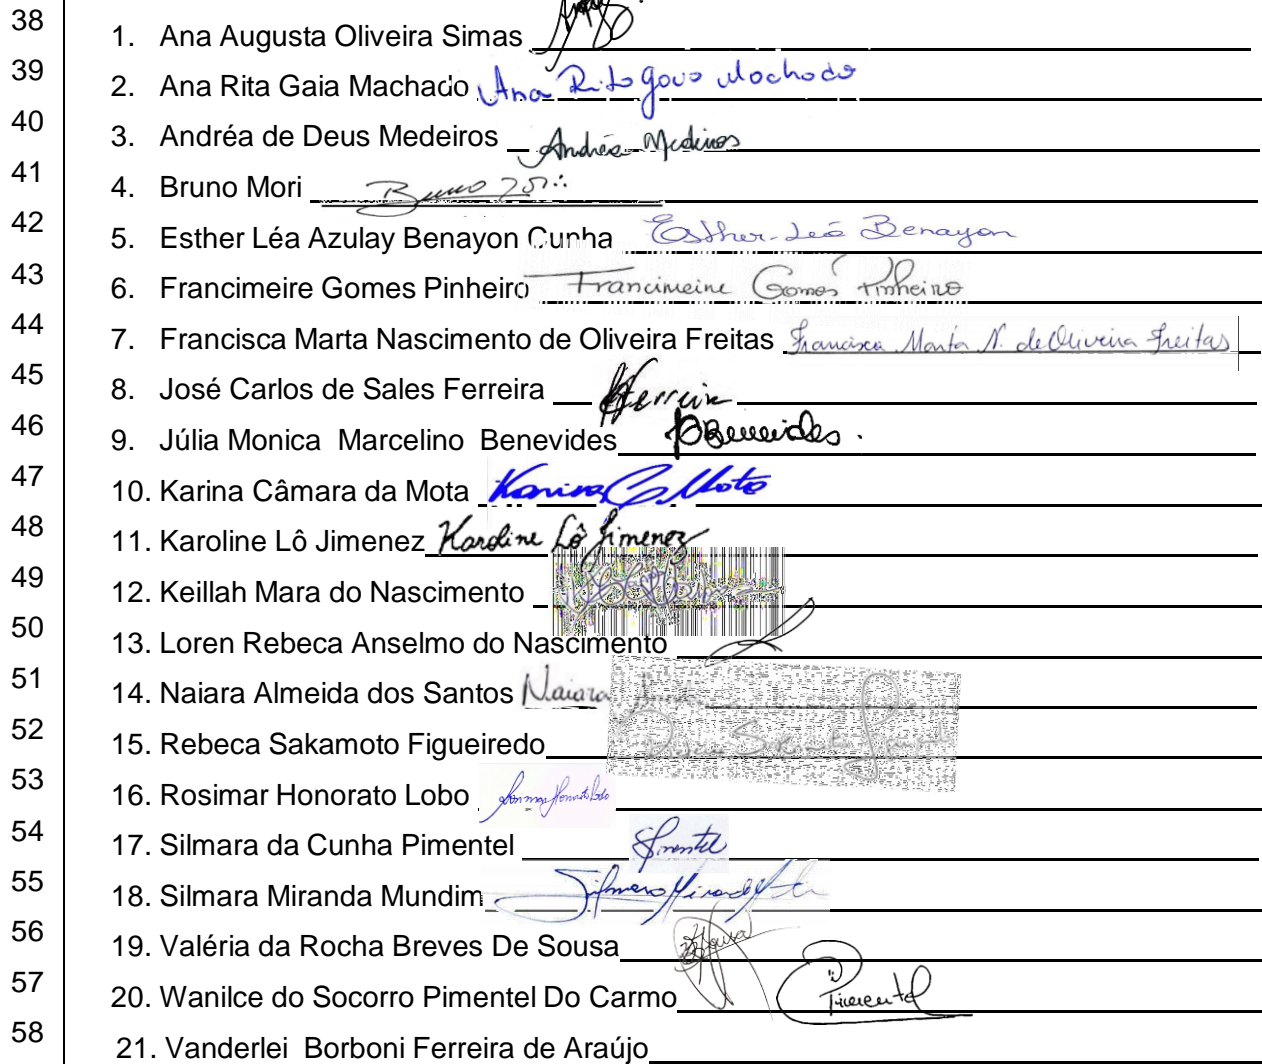 38 1. Ana Augusta Oliveira Simas
39 2. Ana Rita Gaia Machado Ana Rita Gaia Machado
40 3. Andréa de Deus Medeiros Andréa Medeiros
41 4. Bruno Mori Bruno
42 5. Esther Léa Azulay Benayon Cunha Esther Léa Benayon
43 6. Francimeire Gomes Pinheiro Francimeire Gomes Pinheiro
44 7. Francisca Marta Nascimento de Oliveira Freitas Francisca Marta N. de Oliveira Freitas
45 8. José Carlos de Sales Ferreira Ferreira
46 9. Júlia Monica Marcelino Benevides Benevides.
47 10. Karina Câmara da Mota Karina C Mota
48 11. Karoline Lô Jimenez Karoline Lô Jimenez
49 12. Keillah Mara do Nascimento
50 13. Loren Rebeca Anselmo do Nascimento
51 14. Naiara Almeida dos Santos Naiara
52 15. Rebeca Sakamoto Figueiredo
53 16. Rosimar Honorato Lobo
54 17. Silmara da Cunha Pimentel
55 18. Silmara Miranda Mundim
56 19. Valéria da Rocha Breves De Sousa Sousa
57 20. Wanilce do Socorro Pimentel Do Carmo Pimentel
58 21. Vanderlei Borboni Ferreira de Araújo